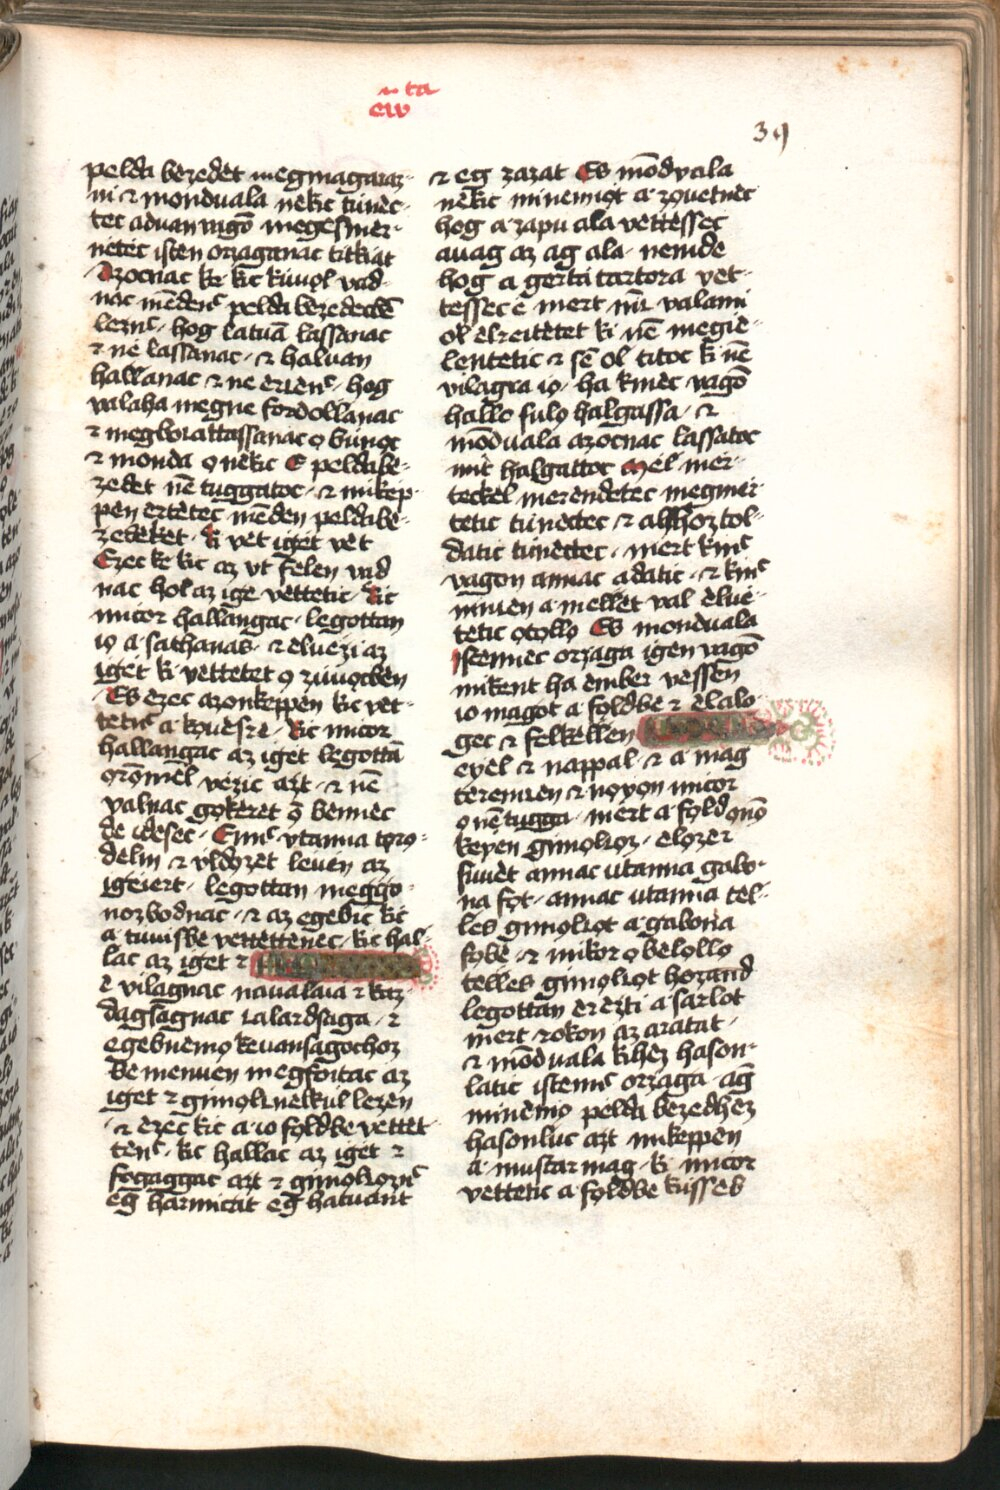 cıv͂ ta
39
pelda bezedèt megmagaraz-
ni ⁊ monduala nèkic tùnèc-
tec aduan vagō megesmèr-
netèc isten orzaganac titkiat
Azocnac kc̄ kic kiuol̇ vad-
nac mēdenc̄ pelda bezedecbē
leznc̄ · hog latuā lassanac
⁊ nè lassanac · ⁊ haluan
hallanac ⁊ ne èrienc̄ · hog
valaha megne fordollanac
⁊ megboiattassanac ȯ bu̇nọc
⁊ monda ȯ nèkic E peldabe-
zedèt nē tuggatoc · ⁊ mikep-
pen èrtètec mēden peldabe-
zedèket · Ki vèt iget vèt
Ezec kc̄ kic az vt felen vad
nac hol az ige vèttètic · Kic
micor hallangac · legottan
io̗ a · sathanas · ⁊ èluezi az
iget ki vèttètèt ȯ zu̇uo̗cbèn
Es ezec azonkeppèn kic vèt-
tètnc̄ a ko̗uèsre · Kic micor
hallangac az iget legottā
o̗ro̗mèl vèzic azt · ⁊ nē
valnac go̗keret ȯ bènnèc
de idesec · Ennc̄ vtanna to̗ro̗-
delm ⁊ vldo̗zèt leuen az
igeiert · legottan meggo-
nozbodnac · ⁊ az egebic kic
a tuuisbe vèttèttènec · kic hal-
lac az iget ⁊
è vilagnac nauaiaia ⁊ kaz-
dagsagnac ialardsaga · ⁊
egebnemo̗ keuansagochoz
bèmenuen megfoitac az
iget ⁊ gimo̗lcnèlkùl lezèn
· ⁊ ezec kic a io fo̗ldbe vèttèt-
tènc̄ · kic hallac az iget ⁊
fogaggac azt ⁊ gimo̗lco̗znc̄
eg̈ harmicat eg̈ hatuant
⁊ eg zazat Es mōduala
nèkic minemiot a zo̗uetnèc
hog a zapu ala vètièssec
auag az ag ala · nemde
hog a gèrta tartora vèt-
tèssec è mert nīci valami
ol èlreitètèt ki nē megiè-
lèntètic ⁊ sē ol titoc ki nē
vilagra io̗ · ha kinèc vagō
hallo fulo̗ halgassa · ⁊
mōduala azocnac lassatoc
mit halgattoc Mèl mèr-
teckèl merèndètec megmèr-
tètic tùnèctec ⁊ alhoztol-
datic tùnèctec · mert kinc̄
vagon annac adatic · ⁊ kinc̄
nincen a mellèt val èluè-
tètic o̗to̗llo̗ Es monduala
Istennèc orzaga igèn vagō
mikent ha èmber vèssèn
io̗ magot a fo̗ldbe ⁊ èlalo-
gec ⁊ felkèllen
eyèl ⁊ nappal · ⁊ a mag
tèrèmien ⁊ no̗uo̗n micor
ȯ nē tugga · mert a fo̗ld o̗nō
keyèn gimo̗lco̗z · elo̗zèr
fuuèt annac utanna gabo-
na fo̗t · annac utanna tèl-
lès gimo̗lco̗t a gabona
fo̗be · ⁊ mikor ȯ bèlo̗llo̗
tèllès gimo̗lco̗t hozand
legottan èrezti a sarlot
mert ⁊ okon az aratat ·
⁊ mōduala kihez hason-
latic istennc̄ orzaga · ag̈
minèmo̗ pelda bezedhèz
hasonluc azt mikeppèn
a mustar mag · ki micor
vèttètic a fo̗ldbe kùssèb